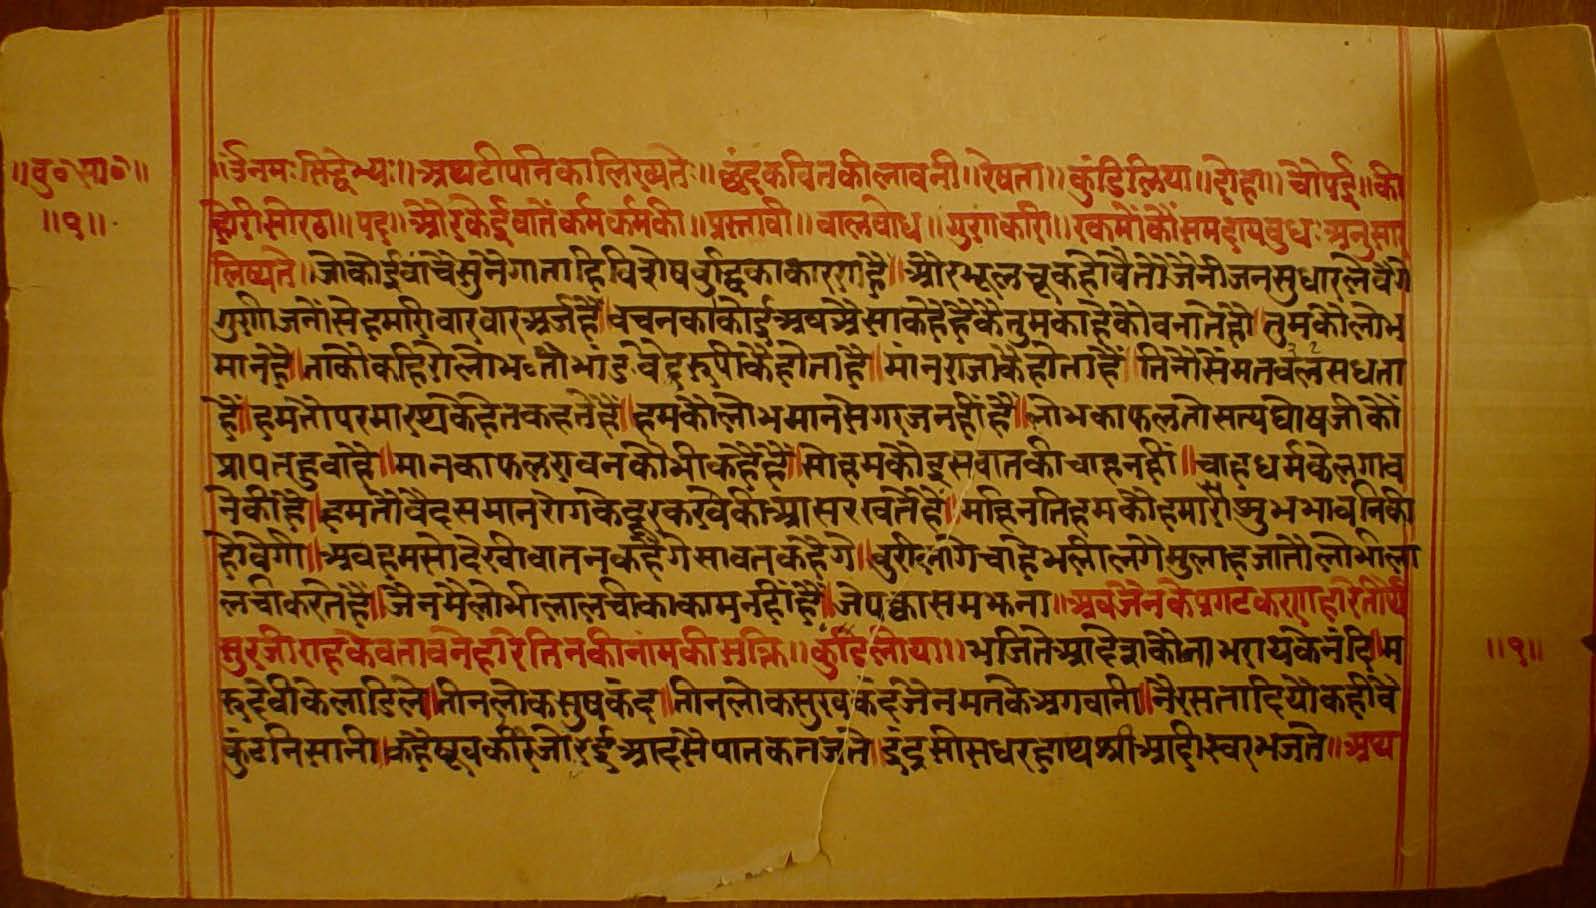 ॥बु०सा०॥
॥१॥
॥ॐनमःसिद्धेभ्यः॥अथटीपनिकालिख्यते॥छंदकवितकीलावनी॥रेषता॥कुंडिलिया॥दोहा॥चोपई॥की
होरीसोरठा॥पद॥औरकेईवातेंकर्मकर्मकी॥प्रस्तावी॥वालवोध॥गुराकारी॥रकमोंकोंसमदायबुधःअनुसार
लिष्यते॥जोकोईवांचैसुनैगाताहिविशेषवुद्धिकाकारणहै॥औरभूलचूकहोवैतोजैनीजनसुधारलेवेंगे
गुणीजनोंसेहमारीवारवारअर्जहै॥वचनकाकोईअवऐसाकेहैहैकैतुमकाहेकोवनातेहो॥तुमकोलोभ
मानहै॥ताकोकहिरोलोभतोभाडवेदरूपीकैहोताहै॥मांनराजाकैहोताहै॥तिनोसेंमतवलसधता
है॥हमतोपरमारथकेहेतकहतेहै॥हमकौलोभमानसेगरजनहींहै॥लोभकाफलतोसत्यघोषजीकों
प्रापतहुवाहै॥मानकाफलरावनकोभीकहैहै॥सोहमकोइसवातकीचाहनहीं॥चाहधर्मकैलगाव
नेकीहै॥हमतोवैदसमानरोगकेदूरकरवेकीआसरखतेहैं॥महिनतिहमकोहमारीशुभभावनिकी
होवेगी॥अवहमसोदेखीवातनकहैंगेसावतकहेंगे॥वुरीलागेचाहेभलीलगेमुलाहजातोलोभीला
लचीकरतेहै॥जैनमैलोभीलालचीकाकामनहींहै॥जेपक्कासमझना॥अवजैनकेप्रगटकरणहारेतीर्थ
सुरजीराहकेवतावनेहारेतिनकीनांमकीभक्ति॥कुंडिलीया॥भजितेआदेशकोनाभरायकेनंदि॥म
रुदेवीकेलाडिले॥तीनलोकसुषकंद॥तीनलोकसुखकंदजैनमतकेअगवानी॥नैरसतादियोकहींवै
कुंठनिसानी॥कहैषूवकीरजोरईआदसेपातकतजते॥इंद्रसीसधरहाथश्रीआदीस्वरभजते॥अथ
॥१॥